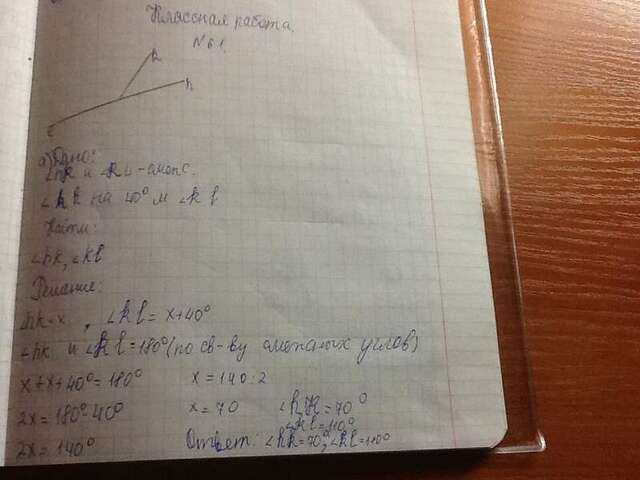 Классная работа.
№61.
k
h
l
а) Дано:
∠hk и ∠kl - смеж.
∠hk на 40° м ∠kl
Найти:
∠hk, ∠kl
Решение:
∠hk=x, ∠kl=x+40°
∠hk и ∠kl=180°(по св-ву смежных углов)
x+x+40°=180° x=140:2
2x=180°-40° x=70 ∠hk=70°
∠kl=110°
2x=140° Ответ: ∠hk=70°, ∠kl=110°